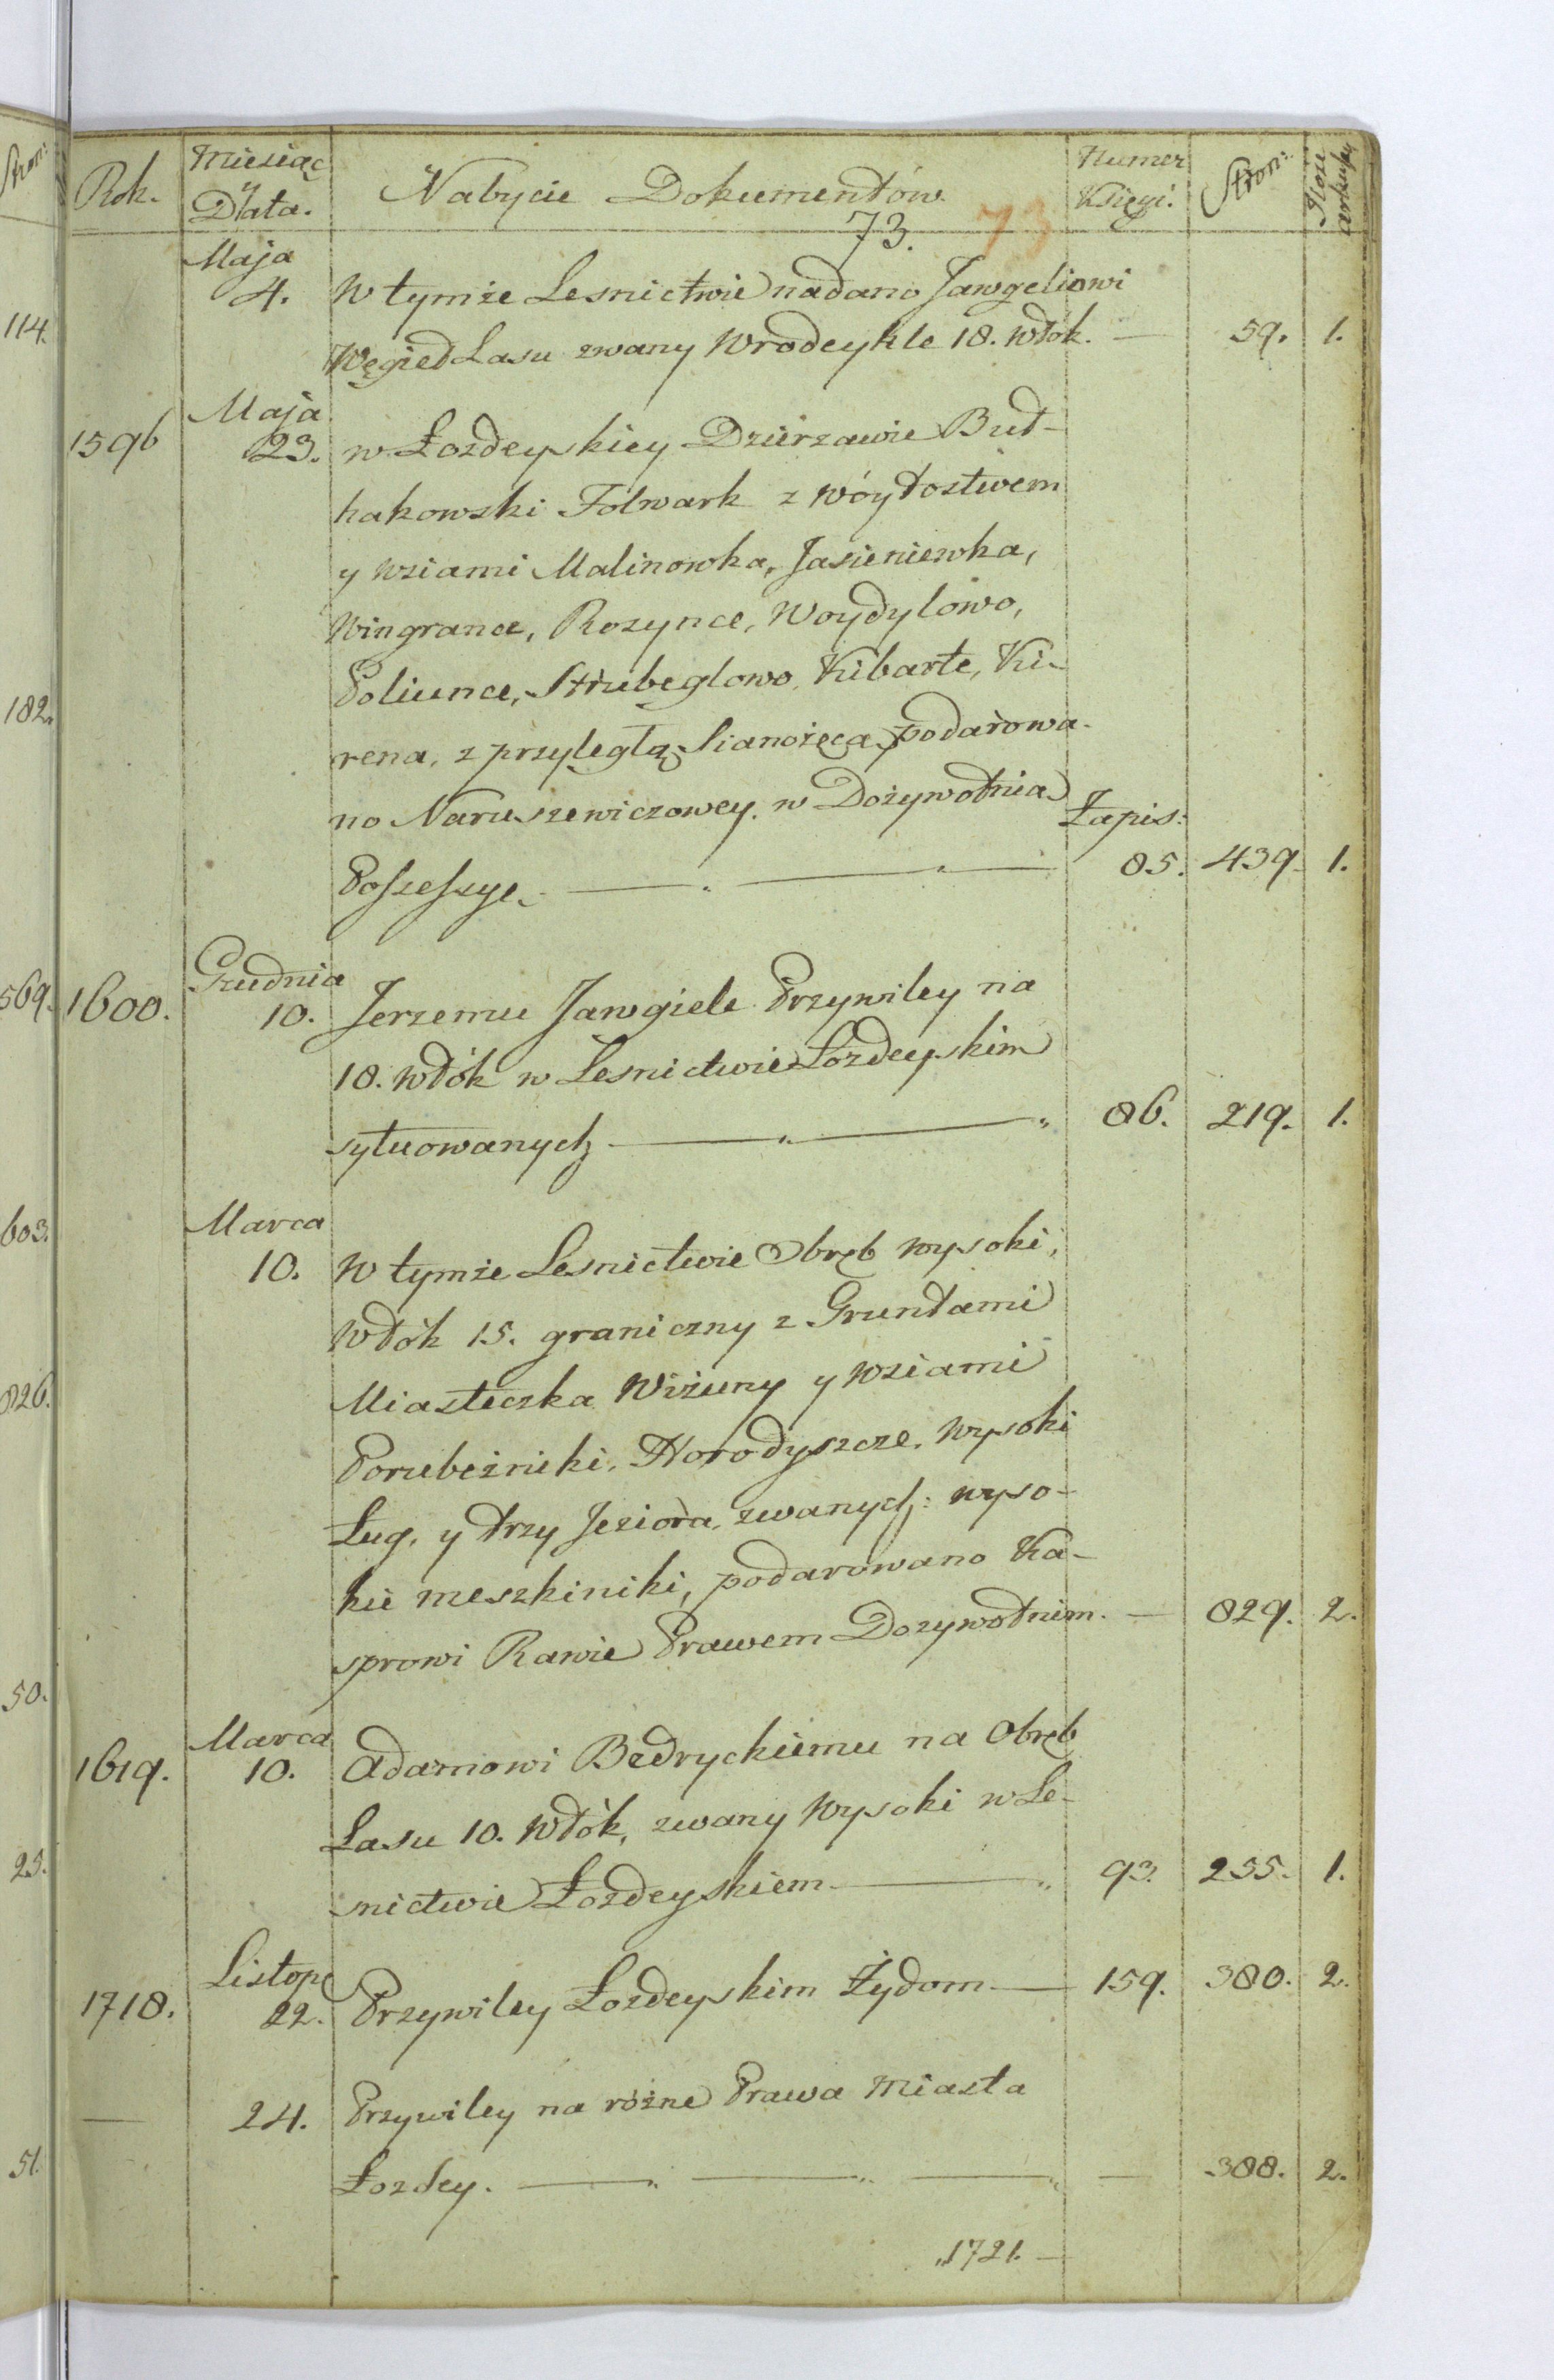 Rok. Miesiąc y Data. Nabycie Dokumentów. Numer Xsięgi. Stron: Ilość
73. 73
Maja
4. W tymże Lesnictwie nadano Jawgeliowi
Węgieł Lasu zwany Wrodeykle 18. włók. — 59. 1.
Maja
1596 23. w Łozdeyskiey Dzierzawie Buł-
hakowski Folwark z Wóytostwem
y wsiami Malinowka, Jasieniewka,
Wingrance, Rozynce, Woydylowo,
Poliunce, Strubeglowo, Kibarte, Ki-
rena, z przyległą Sianożęcą podarowa-
no Naruszewiczowey. w Dożywotnią Zapis:
Possessye. — 85. 439. 1.
Grudnia
1600. 10. Jerzemu Jawgiele Przywiley na
18. włók w Lesnictwie Łozdeyskim
sytuowanych — 86. 219. 1.
Marca
10. W tymże Lesnictwie Obręb wysoki,
Włók 15. graniczny z Gruntami
Miasteczka Wiżuny y wsiami
Porubeżniki, Horodyszcze, wysoki
Ług, y trzy Jeziora, zwanych: wyso-
kie meszkiniki, podarowano Ka-
sprowi Rawie Prawem Dozywotnim. — 829. 2.
Marca
1619. 10. Adamowi Bedryckiemu na Obręb
Lasu 10. Włók, zwany Wysoki w Le-
snictwie Łozdeyskiem — 93. 255. 1.
Listop
1718. 22. Przywiley Łozdeyskim Żydom — 159. 380. 2.
— 24. Przywiley na różne Prawa Miasta
Łozdey. — — — — 388. 2.
„1721. —
Stron:
114.
182.
569.
603.
826.
50.
25.
51.